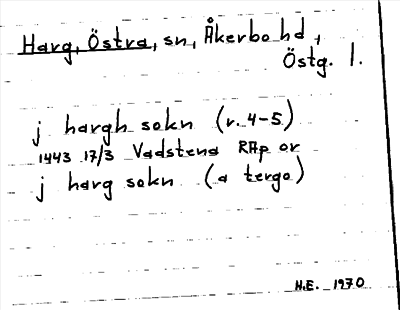 Harg, Östra, sn, Åkerbo hd,
Östg. l.
j hargh sokn (r. 4-5)
1443 17/3 Vadstena RAp or
j harg sokn (a tergo)
H.E. 1970